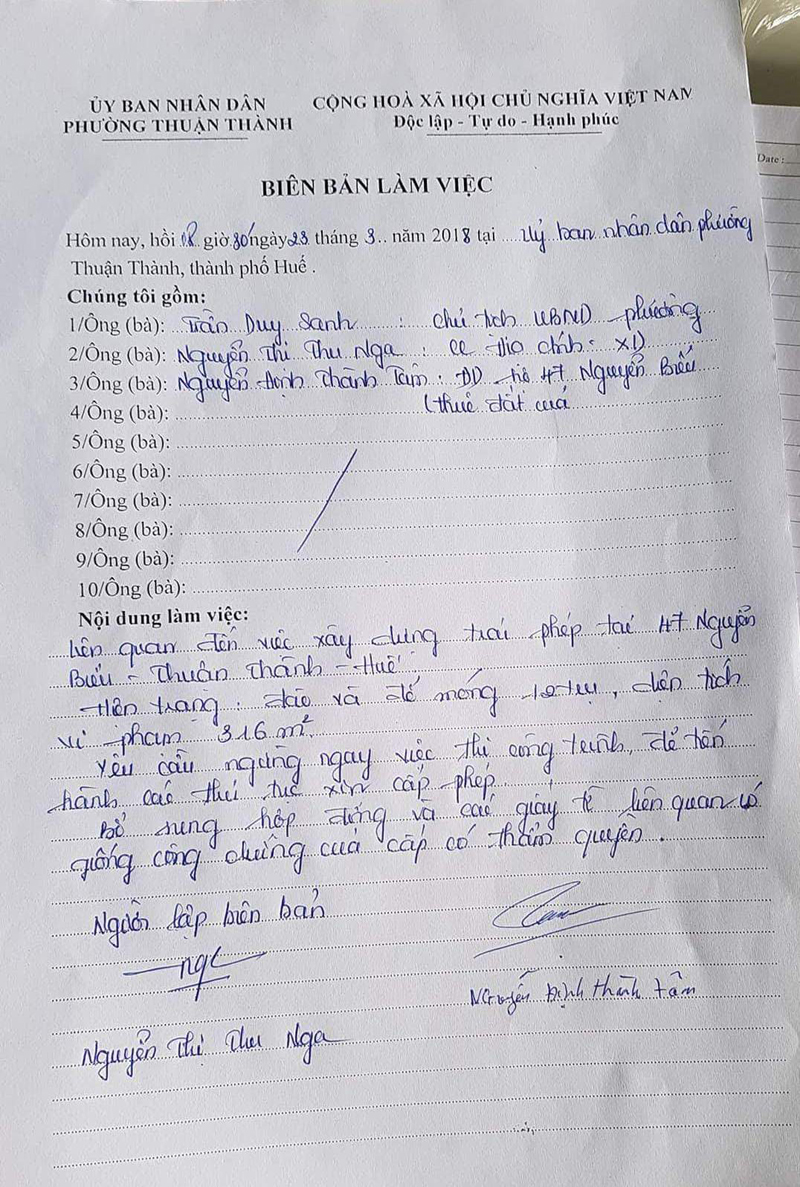 ỦY BAN NHÂN DÂN
PHƯỜNG THUẬN THÀNH
CỘNG HOÀ XÃ HỘI CHỦ NGHĨA VIỆT NAM
Độc lập - Tự do - Hạnh phúc
Date :
BIÊN BẢN LÀM VIỆC
Hôm nay, hồi 08 giờ 30 ngày 23 tháng 3.. năm 2018 tại ....Uỷ ban nhân dân phường
Thuận Thành, thành phố Huế .
Chúng tôi gồm:
1/Ông (bà): Trần Duy Sanh : Chủ tịch UBND phường
2/Ông (bà): Nguyễn Thị Thu Nga : CC Địa chính - XD
3/Ông (bà): Nguyễn Định Thành Tâm : DD 47 Nguyễn Biểu
4/Ông (bà): (thuê đất của
5/Ông (bà):
6/Ông (bà):
7/Ông (bà):
8/Ông (bà):
9/Ông (bà):
10/Ông (bà):
Nội dung làm việc:
Liên quan đến việc xây dựng trái phép tại 47 Nguyễn
Biểu - Thuận Thành - Huế
Hiện trạng : đào và đổ móng 12 trụ, diện tích
vi phạm 316 m².
Yêu cầu ngừng ngay việc thi công trình, để tiến
hành các thủ tục xin cấp phép.
Bổ sung hợp đồng và các giấy tờ liên quan có
giống công chứng của cấp có thẩm quyền.
Người lập biên bản
nga
Nguyễn Định Thành Tâm
Nguyễn Thị Thu Nga